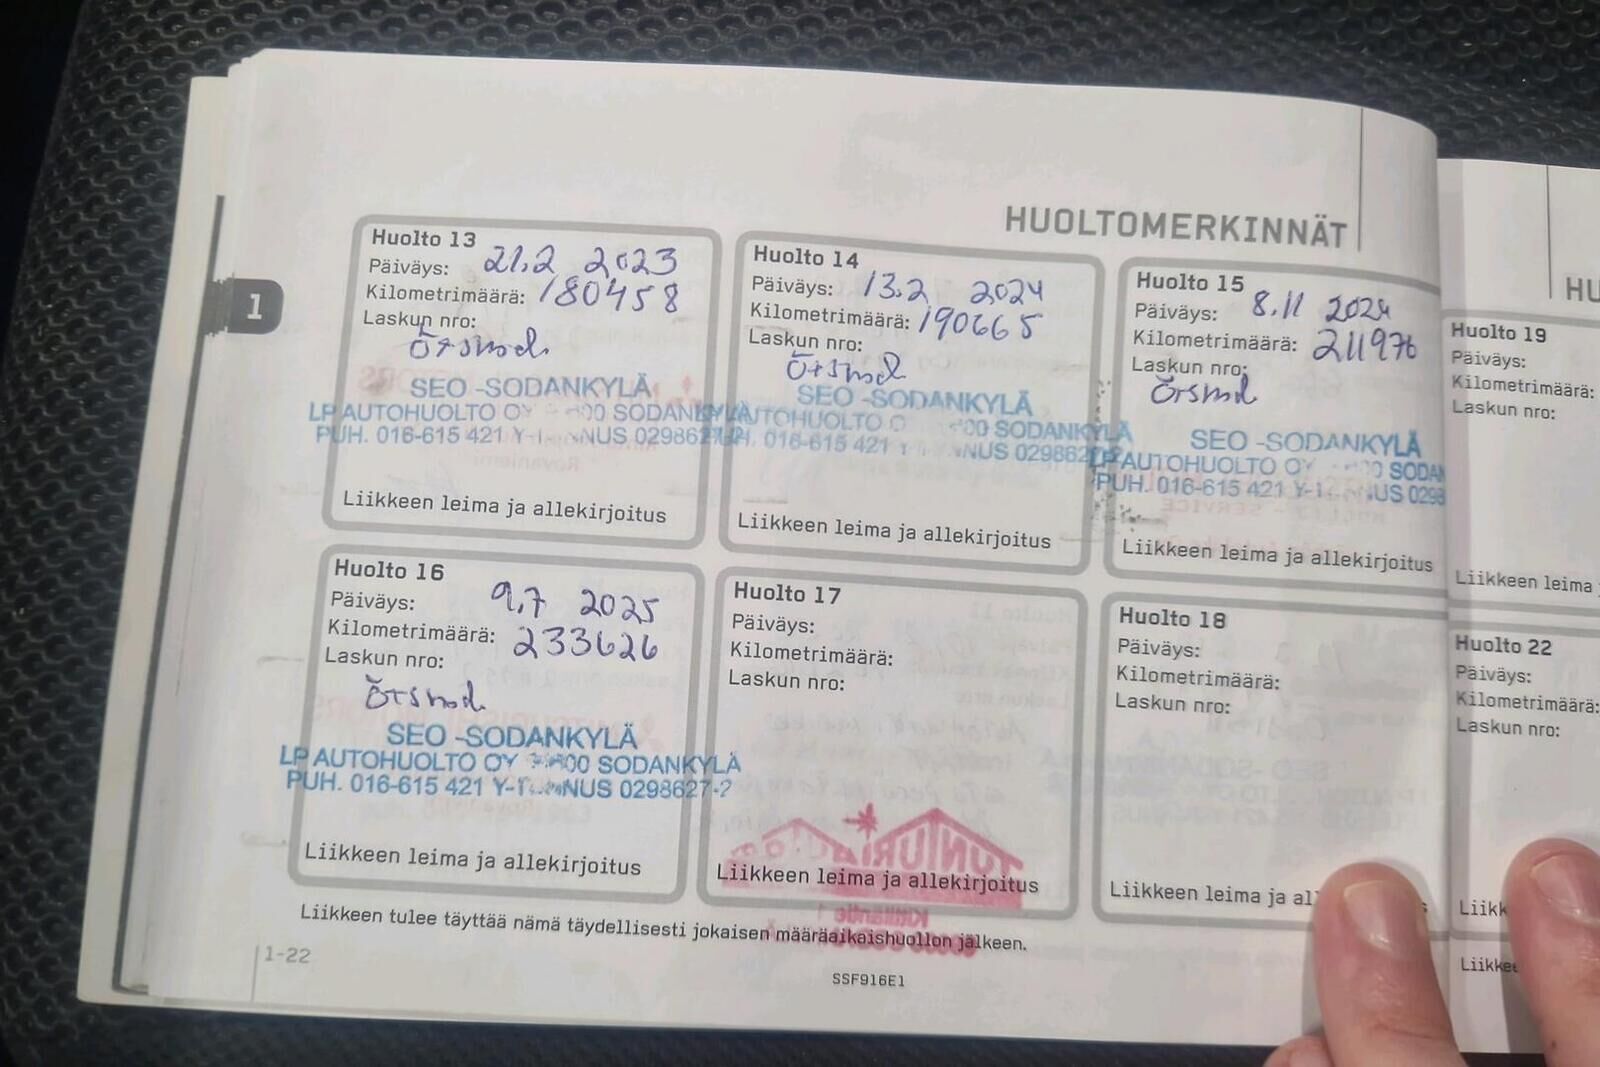 HUOLTOMERKINNÄT
1
Huolto 13
Päiväys: 21.2 2023
Kilometrimäärä: 180458
Laskun nro:
SEO -SODANKYLÄ
LP AUTOHUOLTO OY 00 SODANKYLÄ
PUH. 016-615 421 NUS 0298627-2
Liikkeen leima ja allekirjoitus
Huolto 14
Päiväys: 13.2 2024
Kilometrimäärä: 190665
Laskun nro:
SEO -SODANKYLÄ
AUTOHUOLTO O 00 SODANKYLÄ
016-615 421 NUS 029862
Liikkeen leima ja allekirjoitus
Huolto 15
Päiväys: 8.11 2024
Kilometrimäärä: 211976
Laskun nro:
SEO -SODANKYLÄ
LP AUTOHUOLTO OY 00 SODAN
PUH. 016-615 421 NUS 0298
Liikkeen leima ja allekirjoitus
Huolto 16
Päiväys: 9.7 2025
Kilometrimäärä: 233626
Laskun nro:
SEO -SODANKYLÄ
LP AUTOHUOLTO OY 00 SODANKYLÄ
PUH. 016-615 421 NUS 0298627-2
Liikkeen leima ja allekirjoitus
Huolto 17
Päiväys:
Kilometrimäärä:
Laskun nro:
Liikkeen leima ja allekirjoitus
Huolto 18
Päiväys:
Kilometrimäärä:
Laskun nro:
Liikkeen leima ja all
Liikkeen tulee täyttää nämä täydellisesti jokaisen määräaikaishuollon jälkeen.
1-22
SSF916E1
HU
Huolto 19
Päiväys:
Kilometrimäärä:
Laskun nro:
Liikkeen leima
Huolto 22
Päiväys:
Kilometrimäärä:
Laskun nro:
Liikk
Liikkee